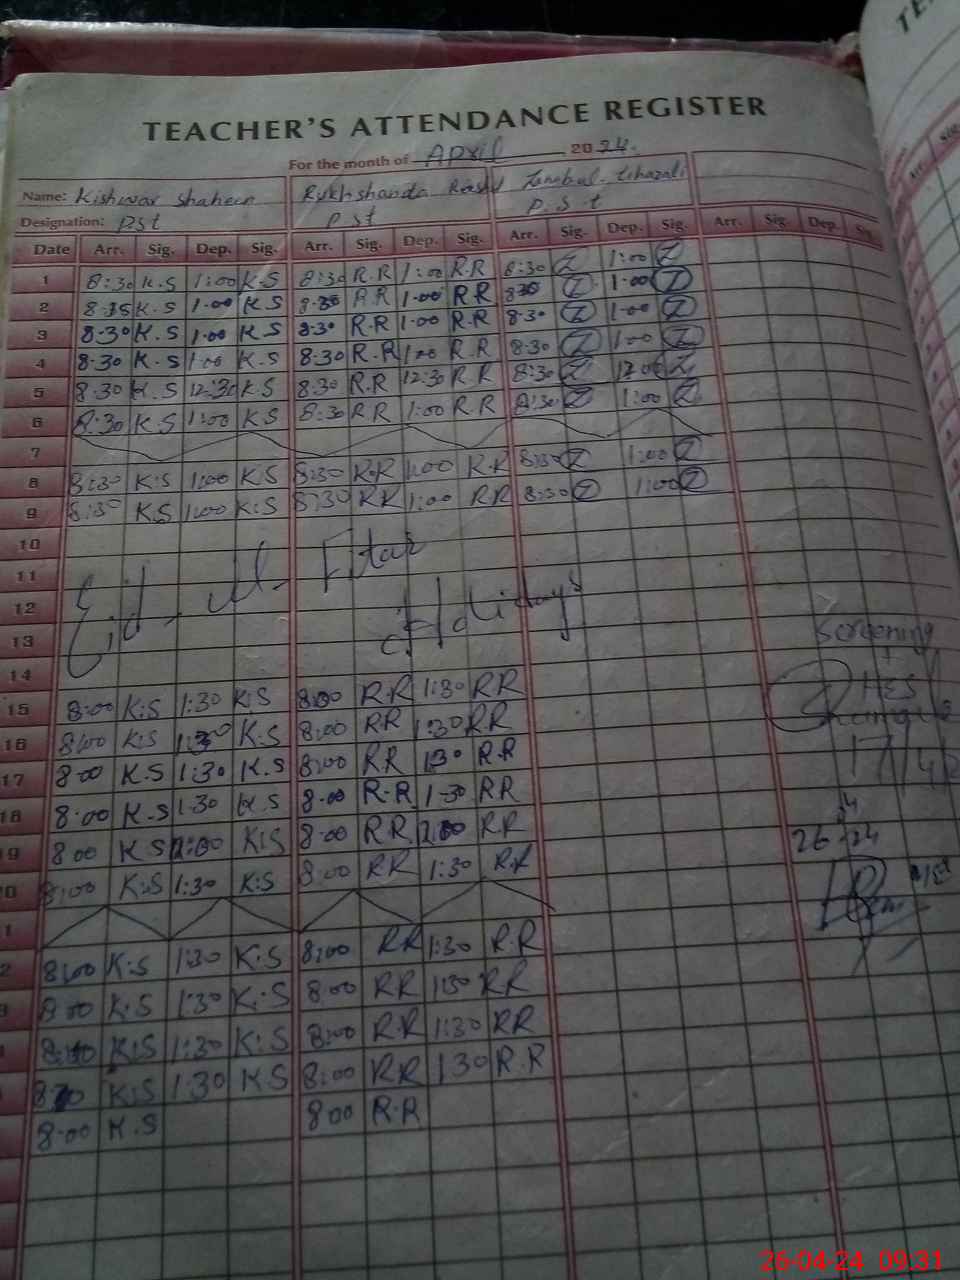 TEACHER'S ATTENDANCE REGISTER
For the month of April 2024.
Name: Kishwar Shaheen Rukhshanda Rashid
Designation: PSt PSt P.S.t
Date Arr. Sig. Dep. Sig. Arr. Sig. Dep. Sig. Arr. Sig. Dep. Sig. Arr. Sig. Dep. Sig.
1 8:30 K.S 1:00 K.S 8:30 R.R 1:00 R.R 8:30 Z 1:00 Z
2 8:35 K.S 1.00 K.S 8.30 R.R 1.00 R.R 8:30 Z 1.00 Z
3 8:30 K.S 1.00 K.S 8.30 R.R 1.00 R.R 8.30 Z 1.00 Z
4 8.30 K.S 1.00 K.S 8.30 R.R 1.00 R.R 8.30 Z 1.00 Z
5 8.30 K.S 12:30 K.S 8.30 R.R 12.30 R.R 8:30 Z Z
6 8:30 K.S 1:00 K.S 8:30 R.R 1:00 R.R 8:30 Z 1:00 Z
7
8 8:30 K:S 1:00 K:S 8:30 R.R 1:00 R.R 8:30 Z 1:00 Z
9 8:30 K.S 1:00 K:S 8:30 RR 1:00 RR 8:30 Z 1:00 Z
10
11 Eid-Ul-Fitar
12 Holidays
13 Screening
14
15 8:00 K:S 1:30 K:S 8:00 R.R 1:30 RR HES
16 8:00 K:S 1:30 K:S 8:00 RR 1:30 RR Shangla
17 8.00 K.S 1:30 K.S 8:00 RR 1:30 R.R 17/4/2
18 8.00 K.S 1.30 K.S 8.00 R.R 1.30 RR
9 8.00 K.S K:S 8:00 RR RR 26 24
0 8:00 K:S 1:30 K:S 8:00 RR 1:30 R.R
1
2 8:00 K:S 1:30 K:S 8:00 RR 1:30 R.R
8:00 K:S 1:30 K:S 8:00 RR 1:30 RR
8:00 K:S 1:30 K:S 8:00 R.R 1:30 RR
K:S 1:30 K.S 8:00 RR 130 R.R
8.00 K.S 8.00 R.R
26-04-24 09:31